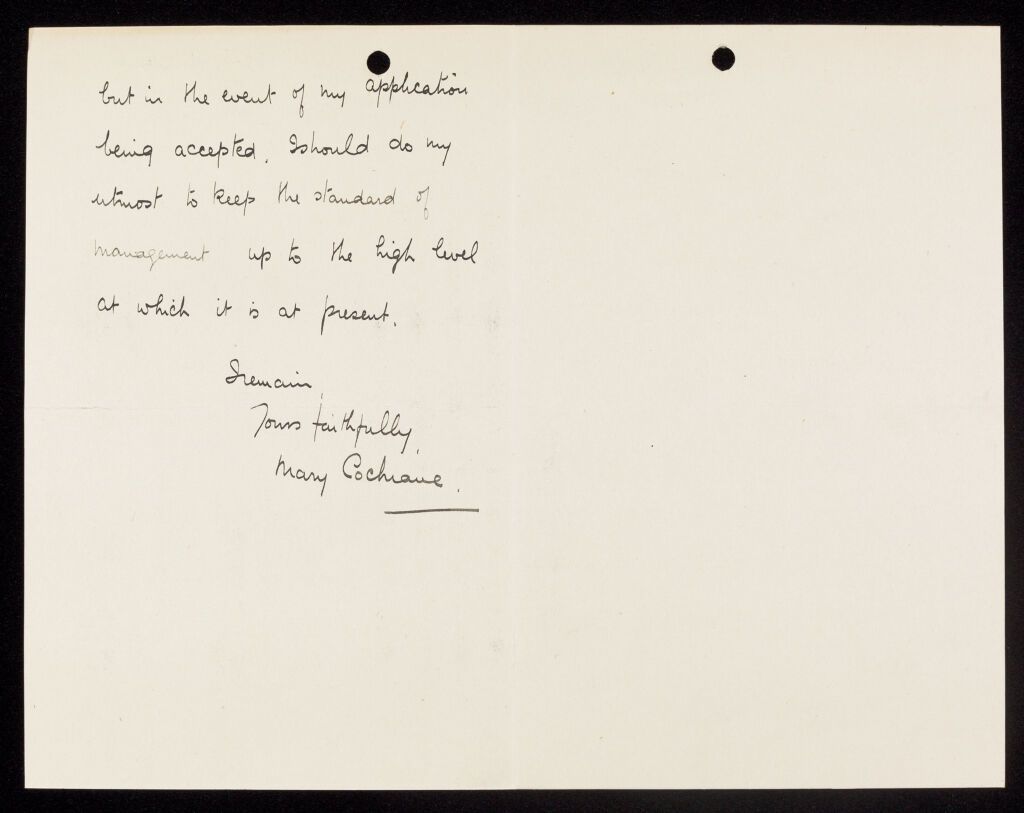 but in the event of my application
being accepted, I should do my
utmost to keep the standard of
management up to the high level
at which it is at present.
I remain,
Yours faithfully,
Mary Cochrane.